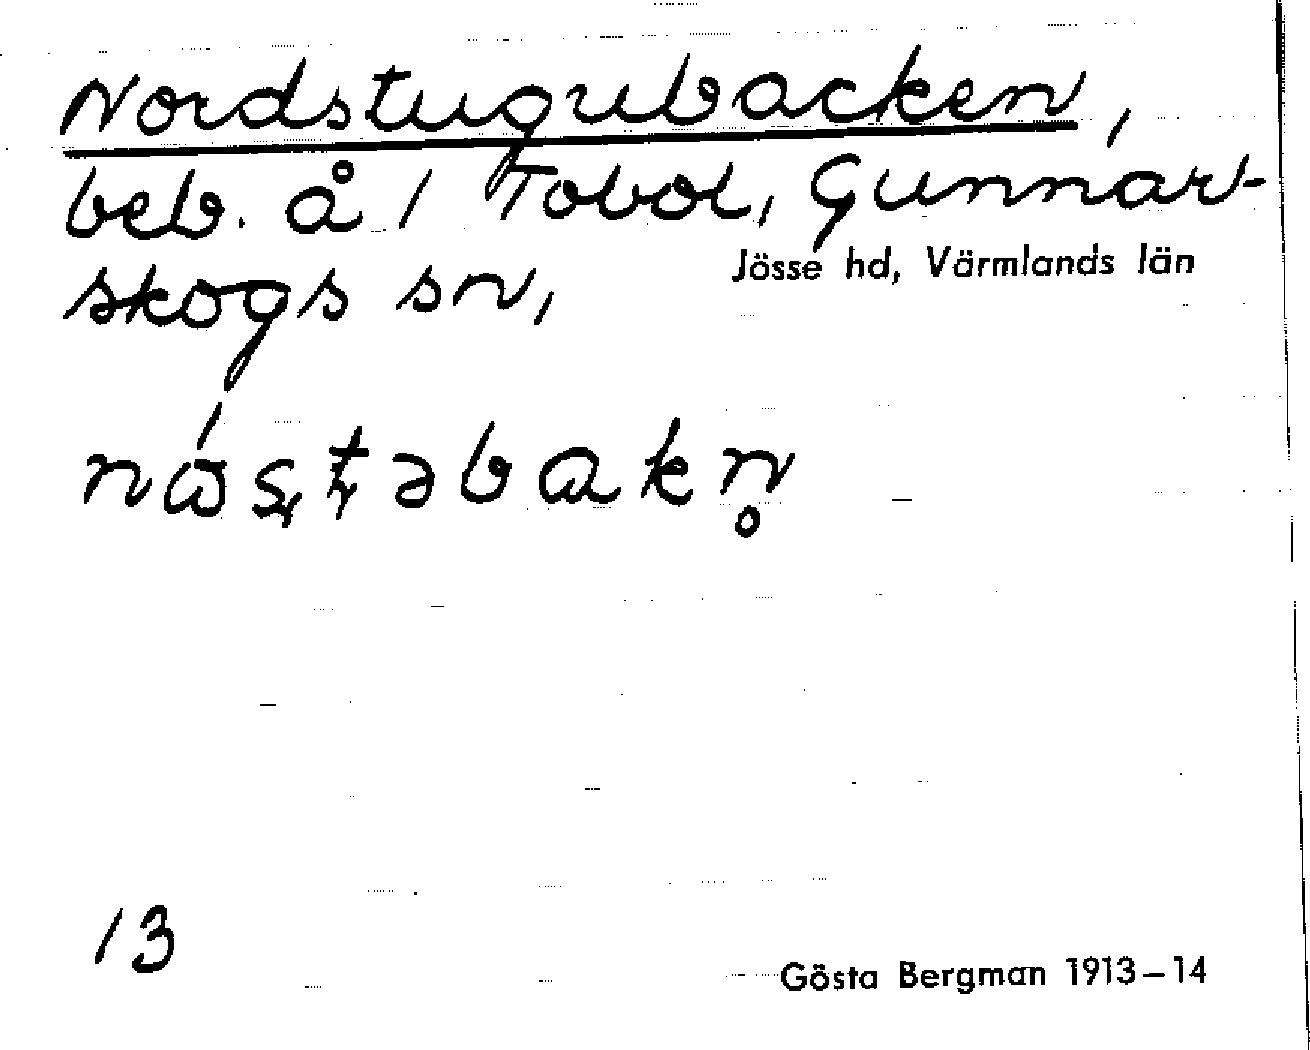 Nordstugubacken,
beb. å 1 Tobol, Gunnar-
skogs sn,
Jösse hd, Värmlands län
nåʂʈəbakn̥
13
Gösta Bergman 1913–14